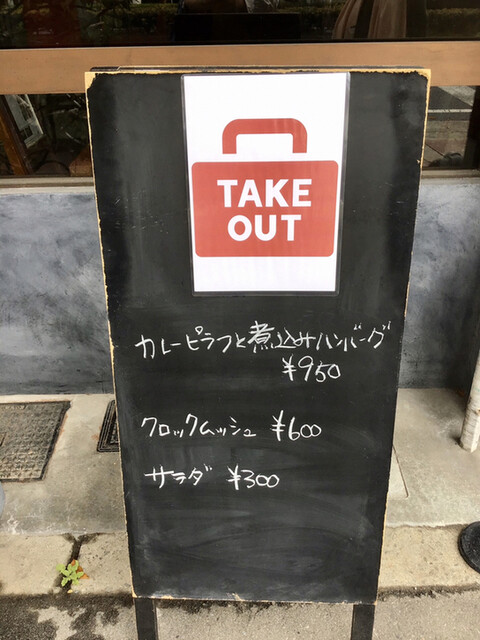 TAKE
OUT
カレーピラフと煮込みハンバーグ
¥950
クロックムッシュ ¥600
サラダ ¥300